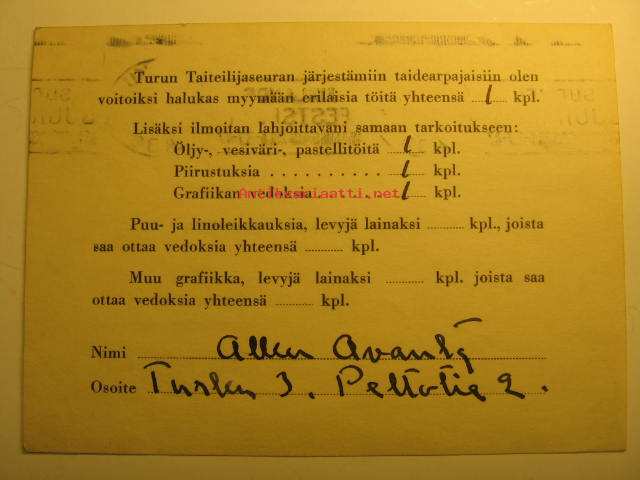 Turun Taiteilijaseuran järjestämiin taidearpajaisiin olen
voitoiksi halukas myymään erilaisia töitä yhteensä 1 kpl.
Lisäksi ilmoitan lahjoittavani samaan tarkoitukseen:
Öljy-, vesiväri-, pastellitöitä 1 kpl.
Piirustuksia . . . . . . . . . . 1 kpl.
Grafiikan vedoksia . . . . . 1 kpl.
Antiikkiaatti.net
Puu- ja linoleikkauksia, levyjä lainaksi ........... kpl., joista
saa ottaa vedoksia yhteensä ........... kpl.
Muu grafiikka, levyjä lainaksi ........... kpl. joista saa
ottaa vedoksia yhteensä ........... kpl.
Nimi Allan
Osoite Turku 3. Peltotie 2.